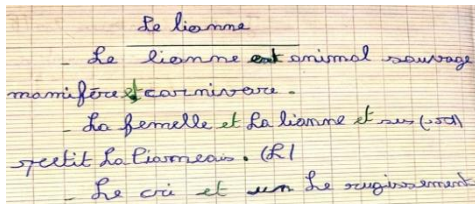 Le lionne
- Le lionne est animal sauvage
mamifère et carnivore.
- La femelle et La lianne et ses (son)
petit La liameais. (L)
- Le cri et un Le rugissement